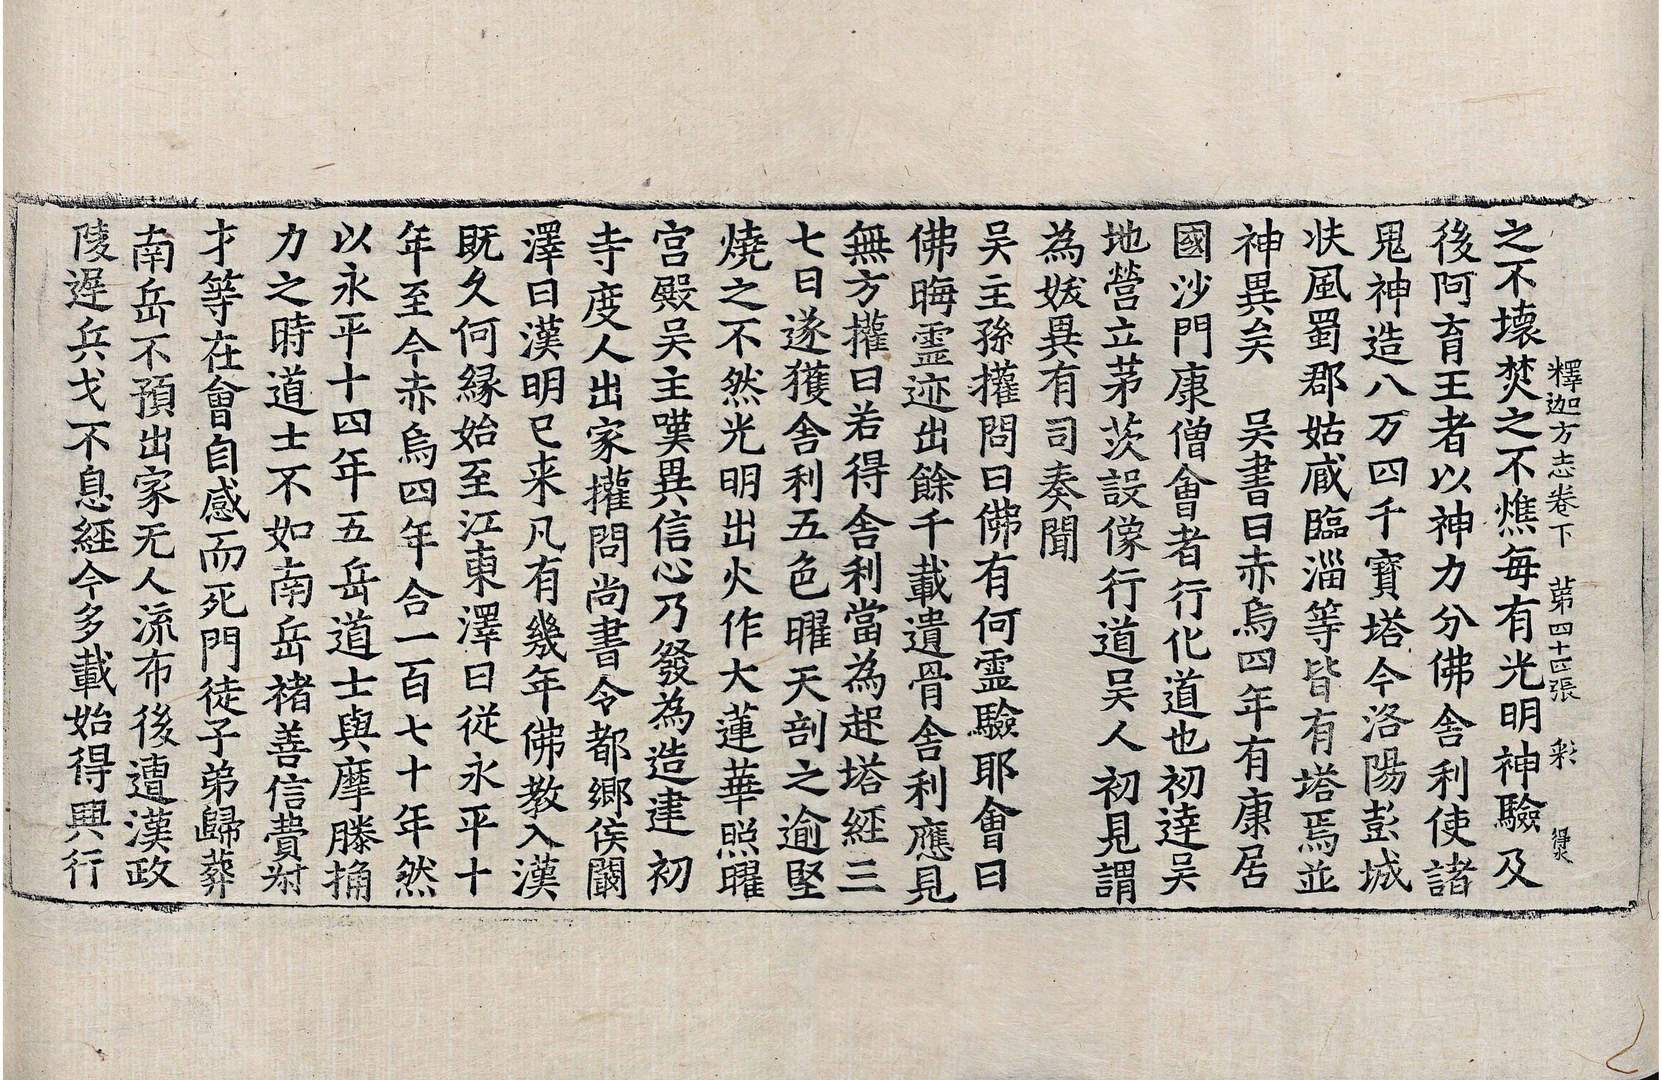 釋迦方志卷下 苐四十四張 彩 得冰
之不壞焚之不燋每有光明神驗及
後阿育王者以神力分佛舍利使諸
鬼神造八万四千寶塔今洛陽彭城
扶風蜀郡姑臧臨淄等皆有塔焉並
神異矣 吴書曰赤烏四年有康居
國沙門康僧會者行化道也初達吴
地營立茅茨設像行道吴人初見謂
為妖異有司奏聞
吴主孫權問曰佛有何霊驗耶會曰
佛晦霊迹出餘千載遺骨舍利應見
無方權曰若得舍利當為起塔經三
七日遂獲舍利五色曜天剖之逾堅
燒之不然光明出火作大蓮華照曜
宫殿吴主嘆異信心乃發為造建初
寺度人出家權問尚書令都郷侯闞
澤曰漢明已来凡有幾年佛教入漢
既久何緣始至江東澤曰從永平十
年至今赤烏四年合一百七十年然
以永平十四年五岳道士與摩滕捔
力之時道士不如南岳褚善信費叔
才等在會自感而死門徒子弟歸葬
南岳不預出家无人流布後遭漢政
陵遟兵戈不息經今多載始得興行